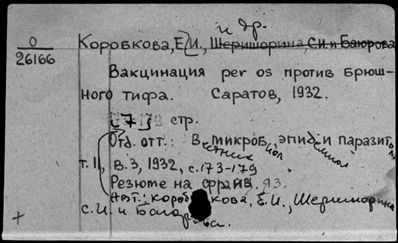 и др.
О
26166
Коробкова, Е.И., Шеришорина, С.И. и Баюрова
Вакцинация per os против брюш-
ного тифа. Саратов, 1932.
[7] стр.
Отд. отт.: Вестник микробиол, эпидемиол и паразитол
т. 11, в. 3, 1932, с. 173-179
Резюме на франц. яз.
Авт.: Коробкова, Е.И., Шеришорина
С.И. и Баюрова.